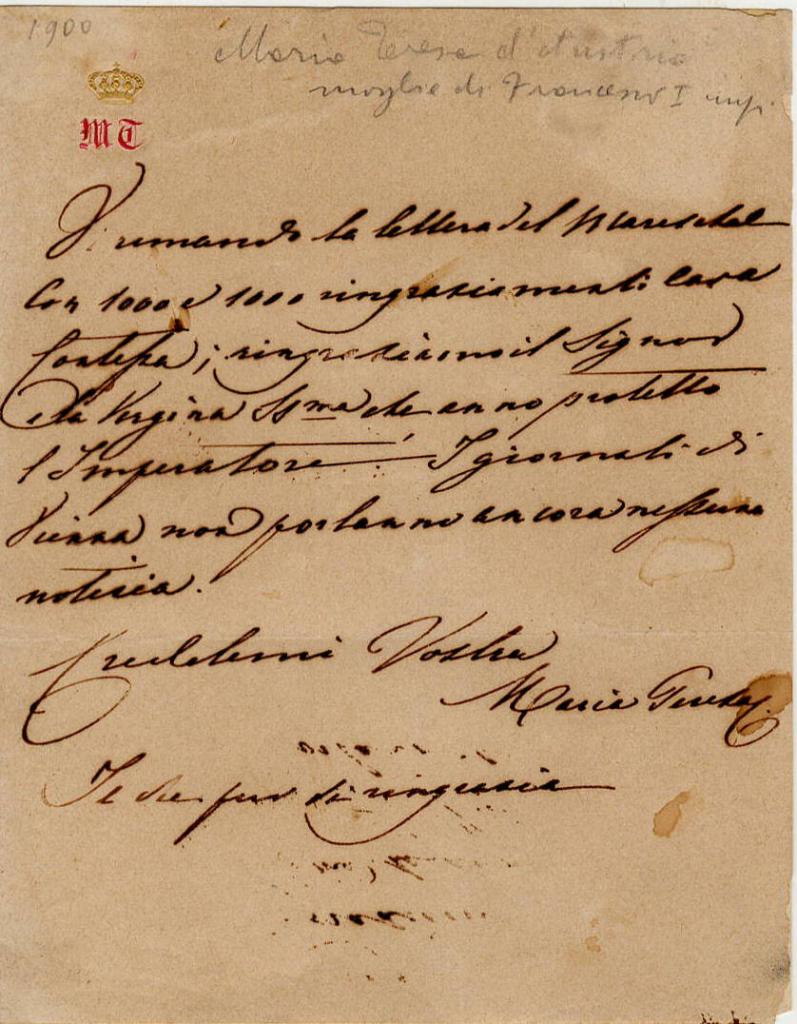 1900
Maria Teresa d'Austria
moglie di Francesco I imp.
MT
Vi rimando la lettera del Mareschal
con 1000 e 1000 ringraziamenti Cara
Contessa; ringraziamo il Signor
e la Vergina SSma che anno protetto
l'Imperatore! I giornali di
Vienna non portanno ancora nessuna
notizia.
Credetemi Vostra
Maria Teresa
Il duca pur di ringrazia